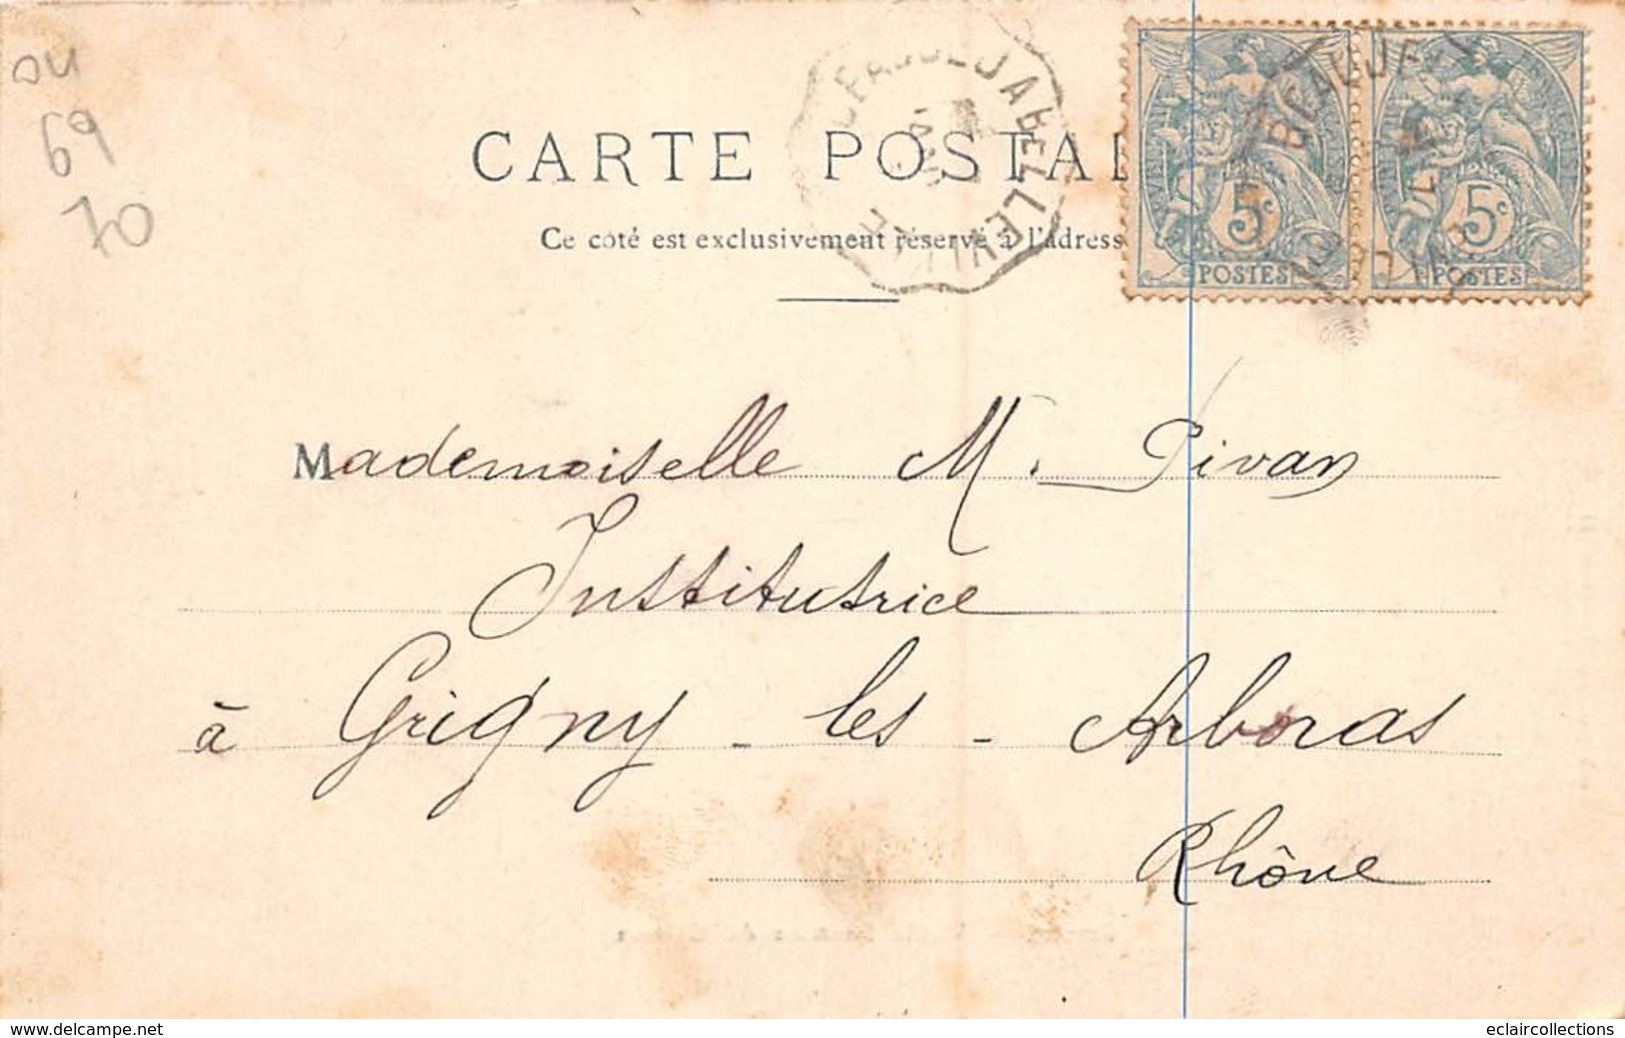 04
69
70
CARTE POSTAL
Ce côté est exclusivement réservé à l'adress
BEAUJEU A BELLEVILLE
5c
POSTES
5c
POSTES
Mademoiselle M. Pivan
Institutrice
à Grigny - les - Arboras
Rhône
www.delcampe.net
eclaircollections